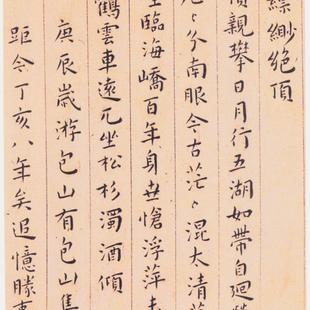 縹緲絕頂
親攀日月行五湖如帶自廻
南眼今古茫々混太清
臨海嶠百年身世愴浮萍
鶴雲車遠兀坐松杉濁酒傾
庚辰歲游包山有包山集
距今丁亥八年矣追憶勝